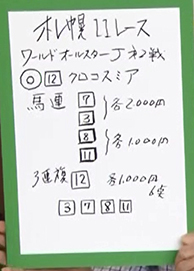 札幌11レース
ワールドオールスターJ初戦
◎ 12 クロコスミア
馬連 7
3 } 各2,000円
8
11 } 各1,000円
3連複 12 各1,000円
6点
3 7 8 11